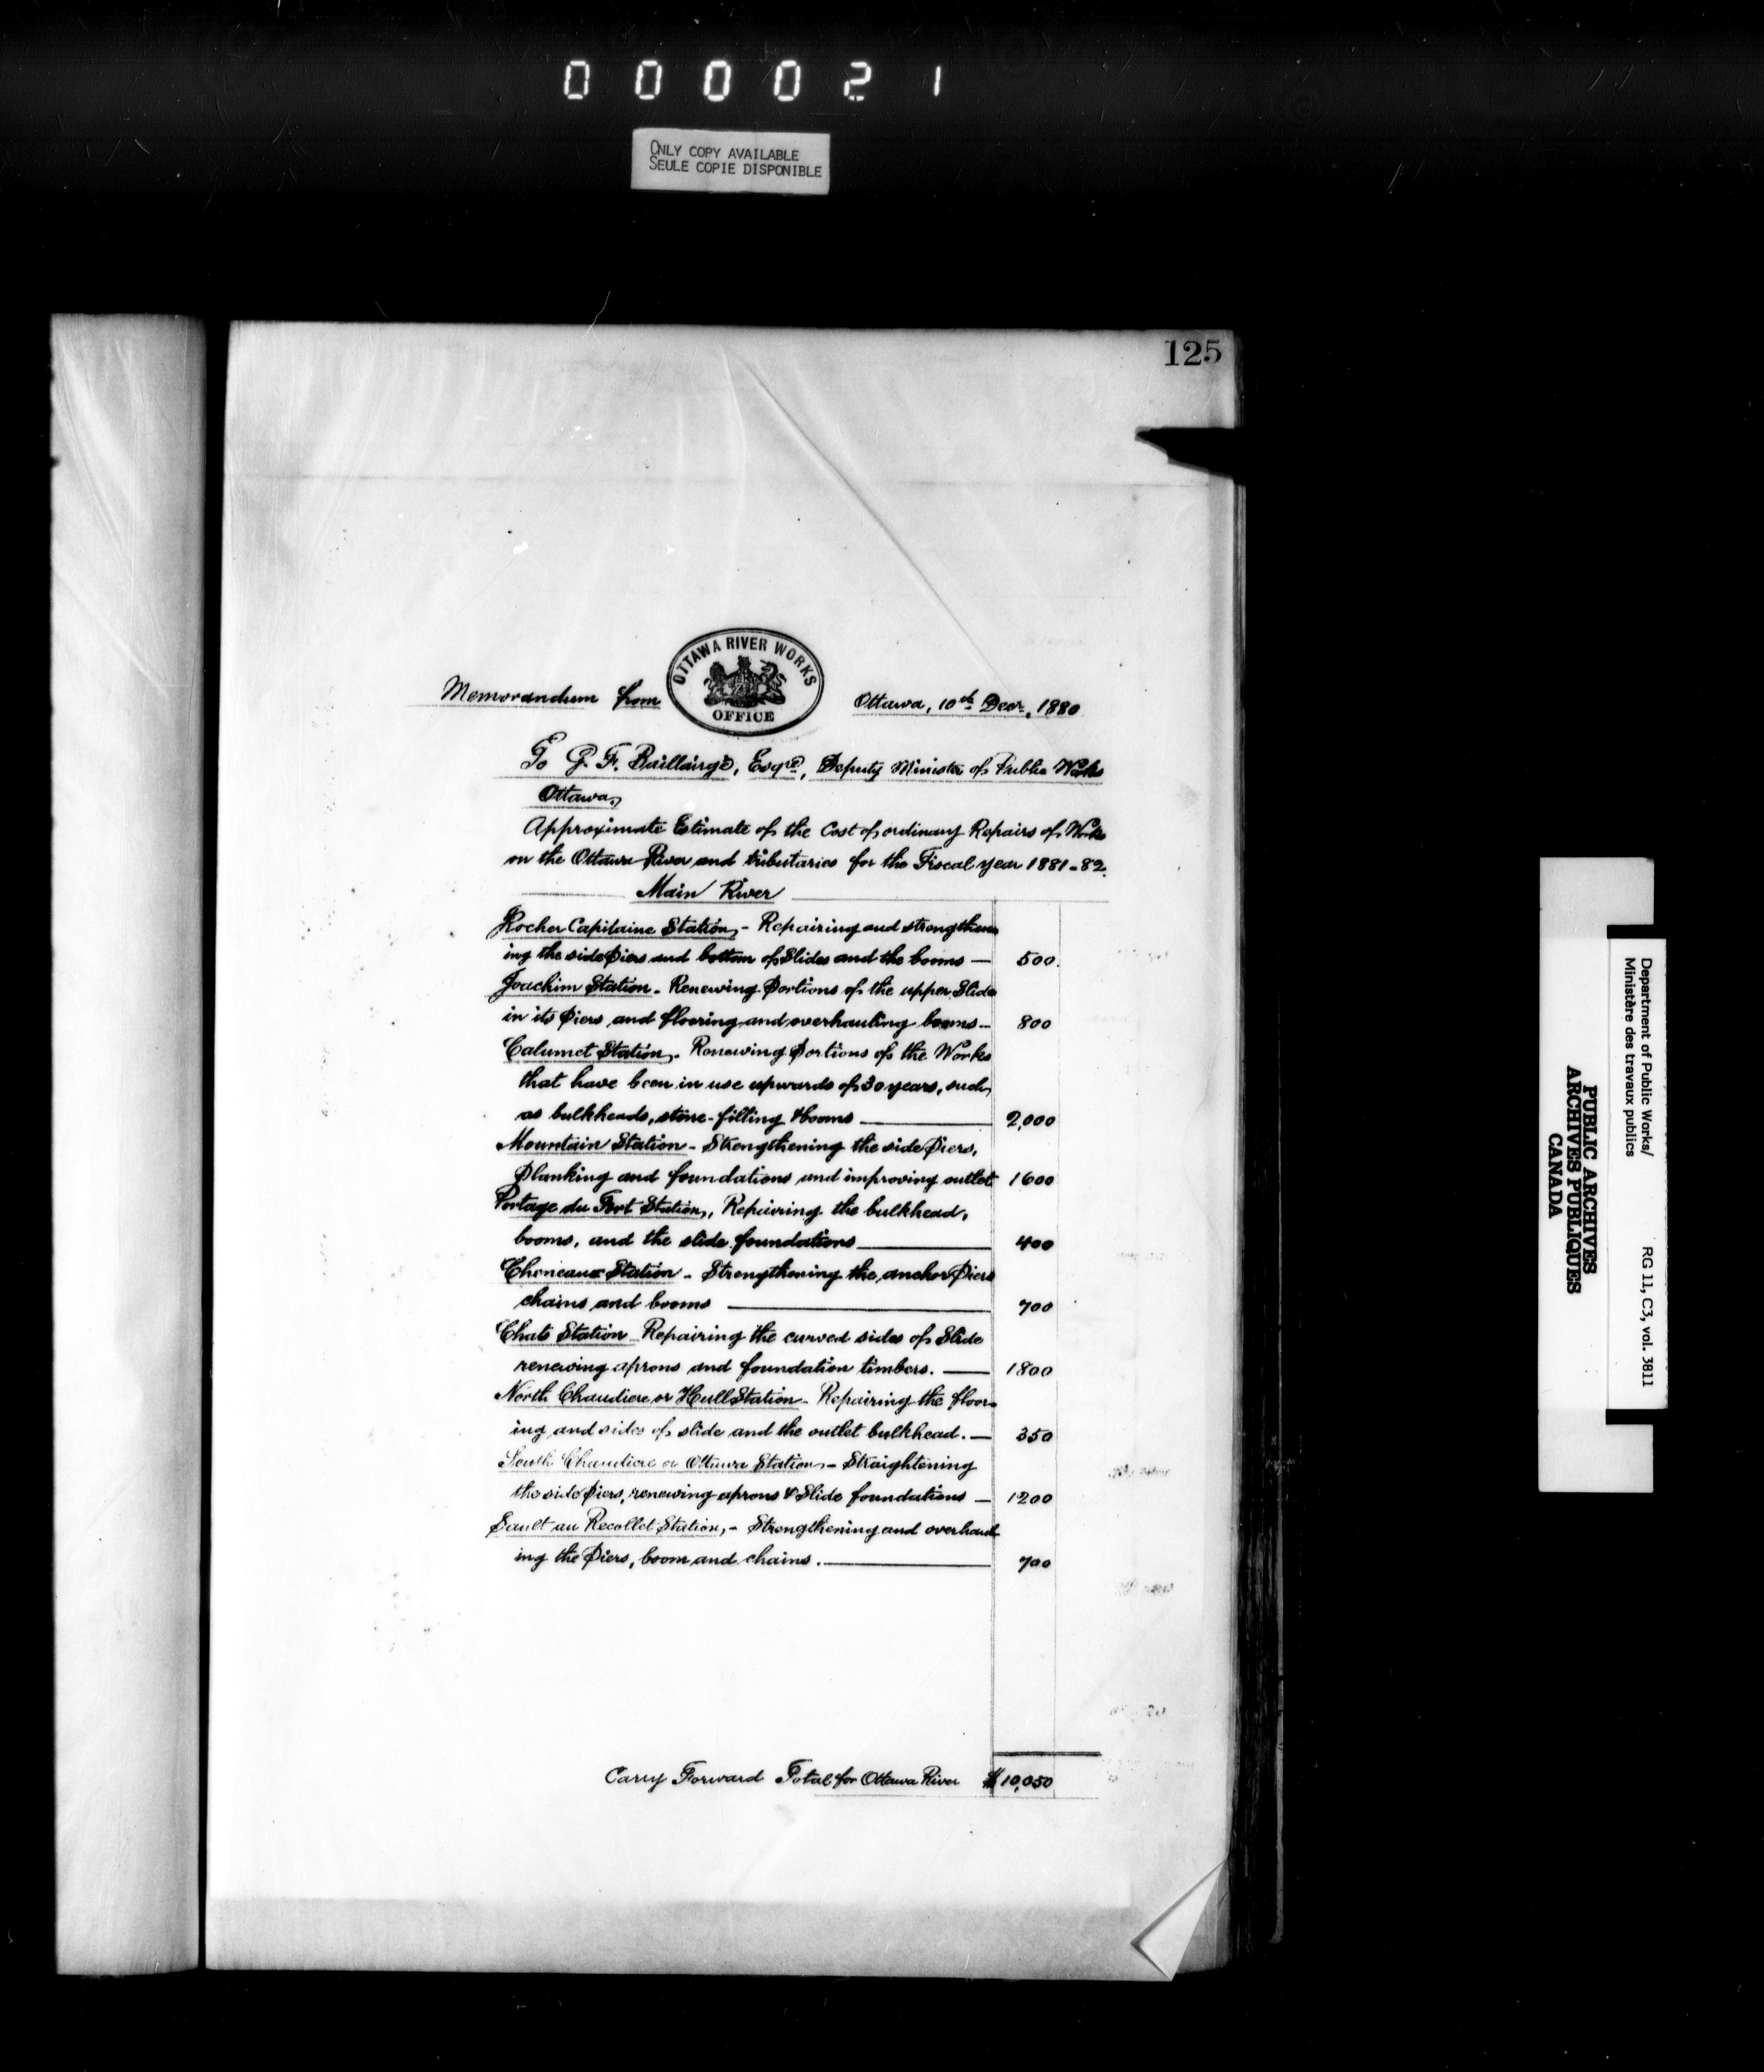 000021
ONLY COPY AVAILABLE
SEULE COPIE DISPONIBLE
125
Memorandum from
OTTAWA RIVER WORKS
OFFICE
Ottawa, 10th Decr, 1880
To G. F. Baillairgé, Esqre, Deputy Minister of Public Works
Ottawa,
Approximate Estimate of the Cost of ordinary Repairs of Works
on the Ottawa River and tributaries for the Fiscal year 1881-82.
Main River
Rocher Capitaine Station, - Repairing and strengthen
ing the side Piers and bottom of Slides and the booms — 500.
Joachim Station - Renewing Portions of the upper Slide
in its Piers and flooring and overhauling booms — 800
Calumet Station, - Renewing Portions of the Works
that have been in use upwards of 30 years, such,
as bulkheads, stone-filling & booms — 2,000
Mountain Station - Strengthening the side Piers,
Planking and foundations and improving outlet 1600
Portage du Fort Station, Repairing the bulkhead,
booms, and the slide foundations — 400
Cheneaux Station - Strengthening the anchor Piers
chains and booms — 700
Chats Station - Repairing the curved sides of Slide
renewing aprons and foundation timbers. — 1800
North Chaudiere or Hull Station - Repairing the floor-
ing and sides of slide and the outlet bulkhead. — 350
South Chaudiere or Ottawa Station, - Straightening
the side Piers, renewing aprons & Slide foundations — 1200
Sault au Recollet Station, - Strengthening and overhaul-
ing the Piers, boom and chains. — 700
Carry Forward Total for Ottawa River $10,050
Department of Public Works/
Ministère des travaux publics
RG 11, C3, vol. 3811
PUBLIC ARCHIVES
ARCHIVES PUBLIQUES
CANADA